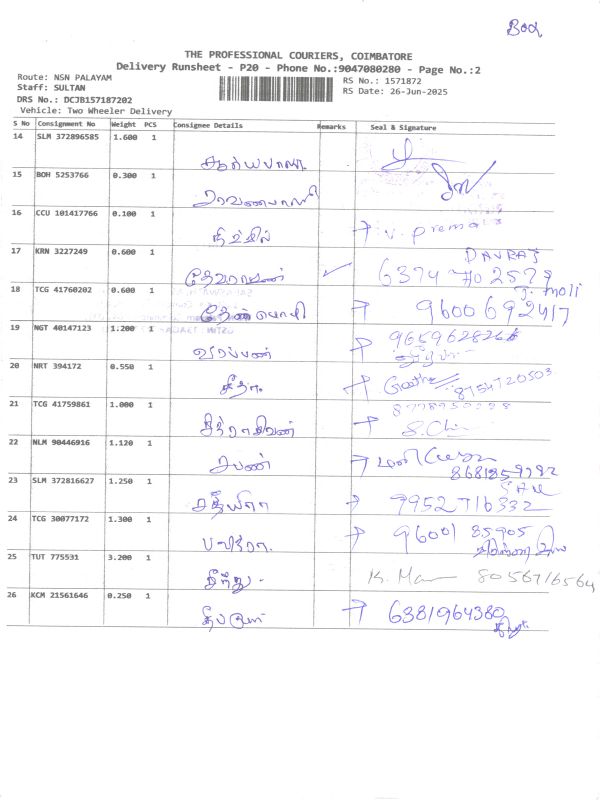 THE PROFESSIONAL COURIERS, COIMBATORE
Delivery Runsheet - P20 - Phone No.:9047080280 - Page No.:2
Route: NSN PALAYAM
RS No.: 1571872
Staff: SULTAN
RS Date: 26-Jun-2025
DRS No.: DCJB157187202
Vehicle: Two Wheeler Delivery
S No Consignment No Weight PCS Consignee Details Remarks Seal & Signature
14 SLM 372896585 1.600 1
15 BOH 5253766 0.300 1
16 CCU 101417766 0.100 1
நிகில் V. Premala
17 KRN 3227249 0.600 1 DAVRAJ
தேவராஜன் ✓ 6374 702579
18 TCG 41760202 0.600 1 moli
தேன்மொழி 9600692417
19 NGT 40147123 1.200 1 9659628266
வீரப்பன்
20 NRT 394172 0.550 1
கீதா. 8754720503
21 TCG 41759861 1.000 1
22 NLM 90446916 1.120 1
சபண் 8681859292
23 SLM 372816627 1.250 1
சத்யா 9952716332
24 TCG 30077172 1.300 1 96001 85905
பவித்ரா.
25 TUT 775531 3.200 1
K. Man 8056716564
26 KCM 21561646 0.250 1
6381964380